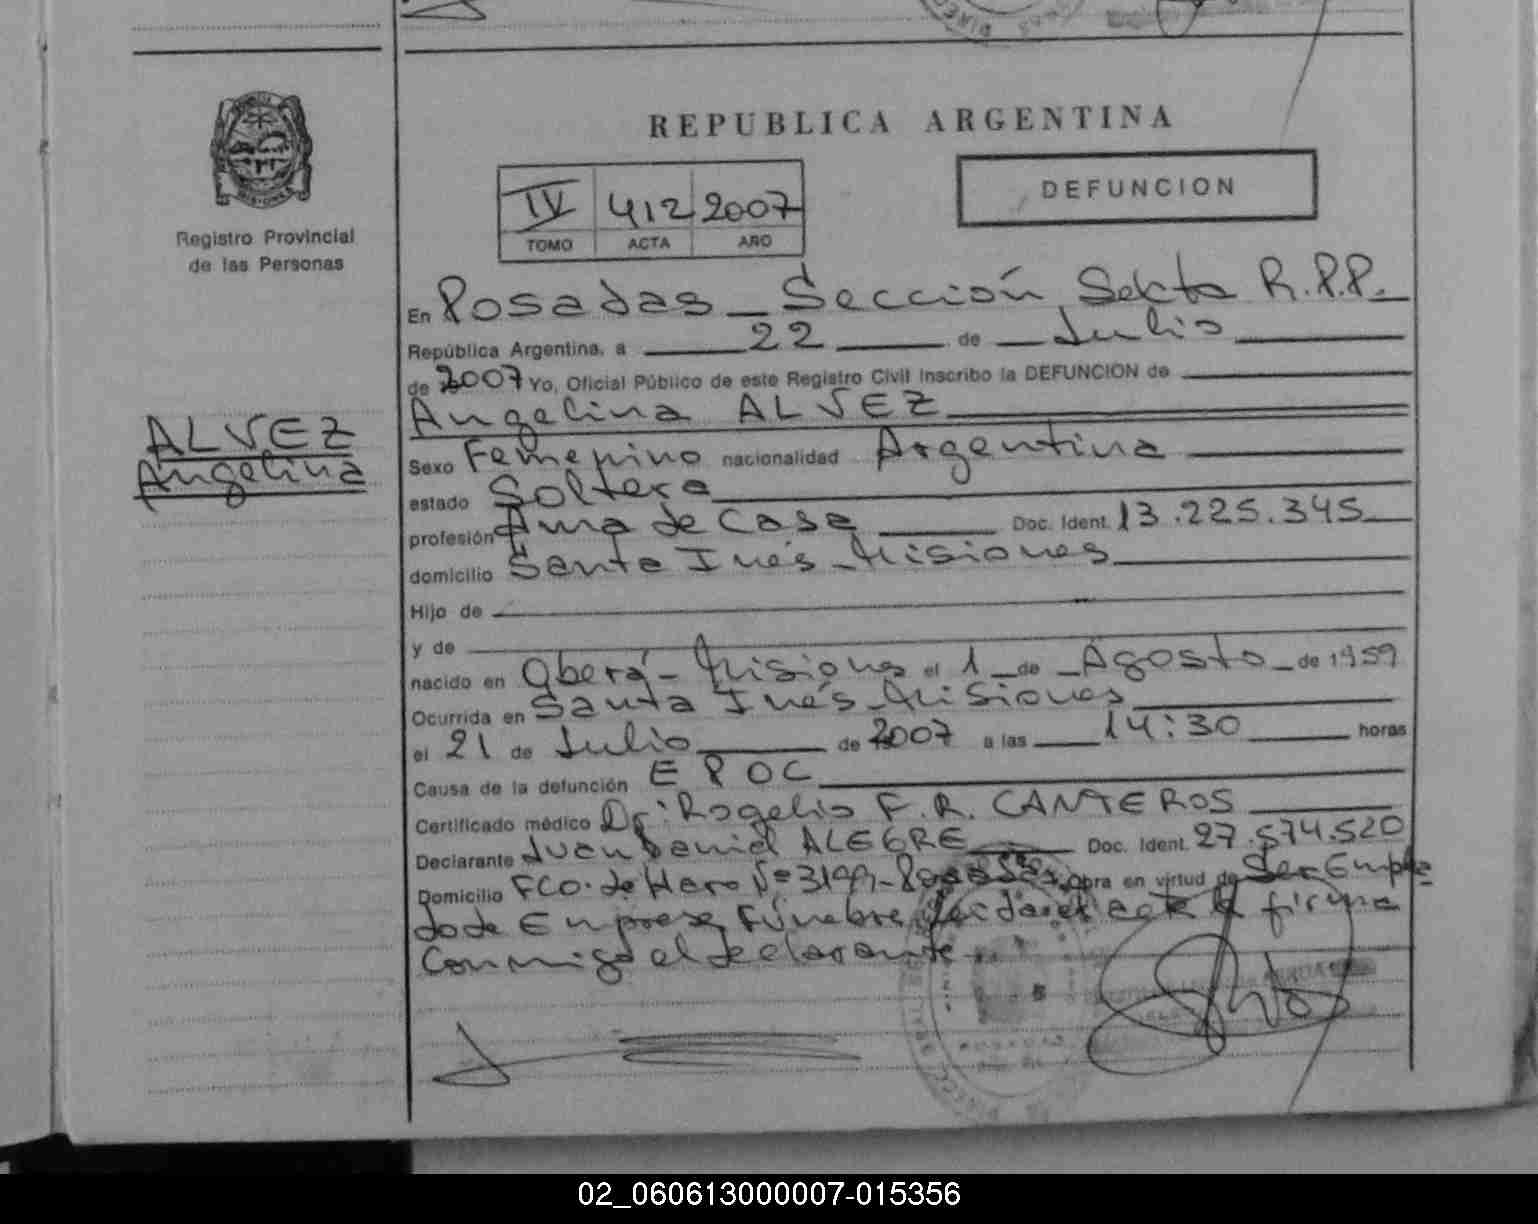 REPUBLICA ARGENTINA
DEFUNCION
IV 412 2007
TOMO ACTA AÑO
Registro Provincial
de las Personas
En Posadas - Sección Sexta R.P.P.
República Argentina, a 22 de Julio
de 2007 Yo, Oficial Público de este Registro Civil Inscribo la DEFUNCION de
Angelina ALVEZ
ALVEZ
Angelina
Sexo Femenino nacionalidad Argentina
estado Soltera
profesión Ama de Casa Doc. Ident. 13.225.345
domicilio Santa Inés - Misiones
Hijo de
y de
nacido en Oberá - Misiones el 1 de Agosto de 1959
Ocurrida en Santa Inés - Misiones
el 21 de Julio de 2007 a las 14:30 horas
Causa de la defunción EPOC
Certificado médico Dr: Rogelio F.R. CANTEROS
Declarante Juan Daniel ALEGRE Doc. Ident. 27.574.520
Domicilio FCO. de Haro Nº 3199 - obra en virtud de Ser Emplea
do de Empresa Fúnebre Leida el acta la firma
Conmigo el declarante
02_060613000007-015356